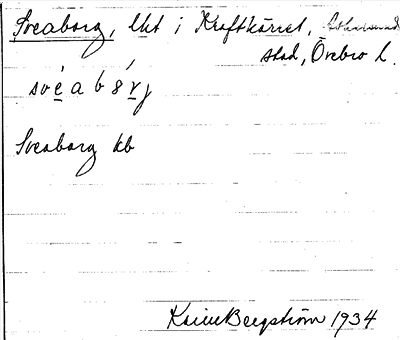 Sveaborg, lht i Kraftkärret,
stad, Örebro l.
svéabórj
Sveaborg kb
Karin Bergström 1934